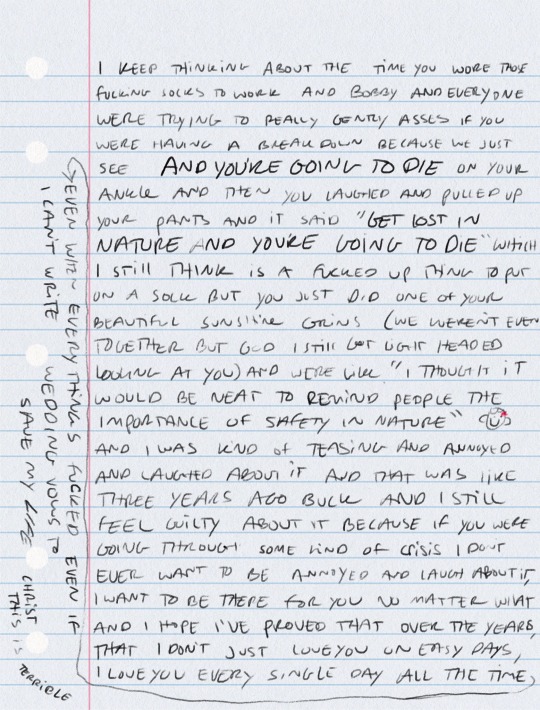 I KEEP THINKING ABOUT THE TIME YOU WORE THOSE
FUCKING SOCKS TO WORK AND BOBBY AND EVERYONE
WERE TRYING TO REALLY GENTLY ASSES IF YOU
WERE HAVING A BREAKDOWN BECAUSE WE JUST
SEE AND YOU'RE GOING TO DIE ON YOUR
ANKLE AND THEN YOU LAUGHED AND PULLED UP
YOUR PANTS AND IT SAID "GET LOST IN
NATURE AND YOU'RE GOING TO DIE" WHICH
I STILL THINK IS A FUCKED UP THING TO PUT
ON A SOCK BUT YOU JUST DID ONE OF YOUR
BEAUTIFUL SUNSHINE GRINS (WE WEREN'T EVEN
TOGETHER BUT GOD I STILL GOT LIGHT HEADED
LOOKING AT YOU) AND WERE LIKE "I THOUGHT IT
WOULD BE NEAT TO REMIND PEOPLE THE
IMPORTANCE OF SAFETY IN NATURE"
AND I WAS KIND OF TEASING AND ANNOYED
AND LAUGHED ABOUT IT AND THAT WAS LIKE
THREE YEARS AGO BUCK AND I STILL
FEEL GUILTY ABOUT IT BECAUSE IF YOU WERE
GOING THROUGH SOME KIND OF CRISIS I DONT
EVER WANT TO BE ANNOYED AND LAUGH ABOUT IT,
I WANT TO BE THERE FOR YOU NO MATTER WHAT
AND I HOPE I'VE PROVED THAT OVER THE YEARS,
THAT I DON'T JUST LOVE YOU ON EASY DAYS,
I LOVE YOU EVERY SINGLE DAY ALL THE TIME,
EVEN WHEN EVERYTHING'S FUCKED EVEN IF
I CAN'T WRITE WEDDING VOWS TO
SAVE MY LIFE CHRIST
THIS IS TERRIBLE